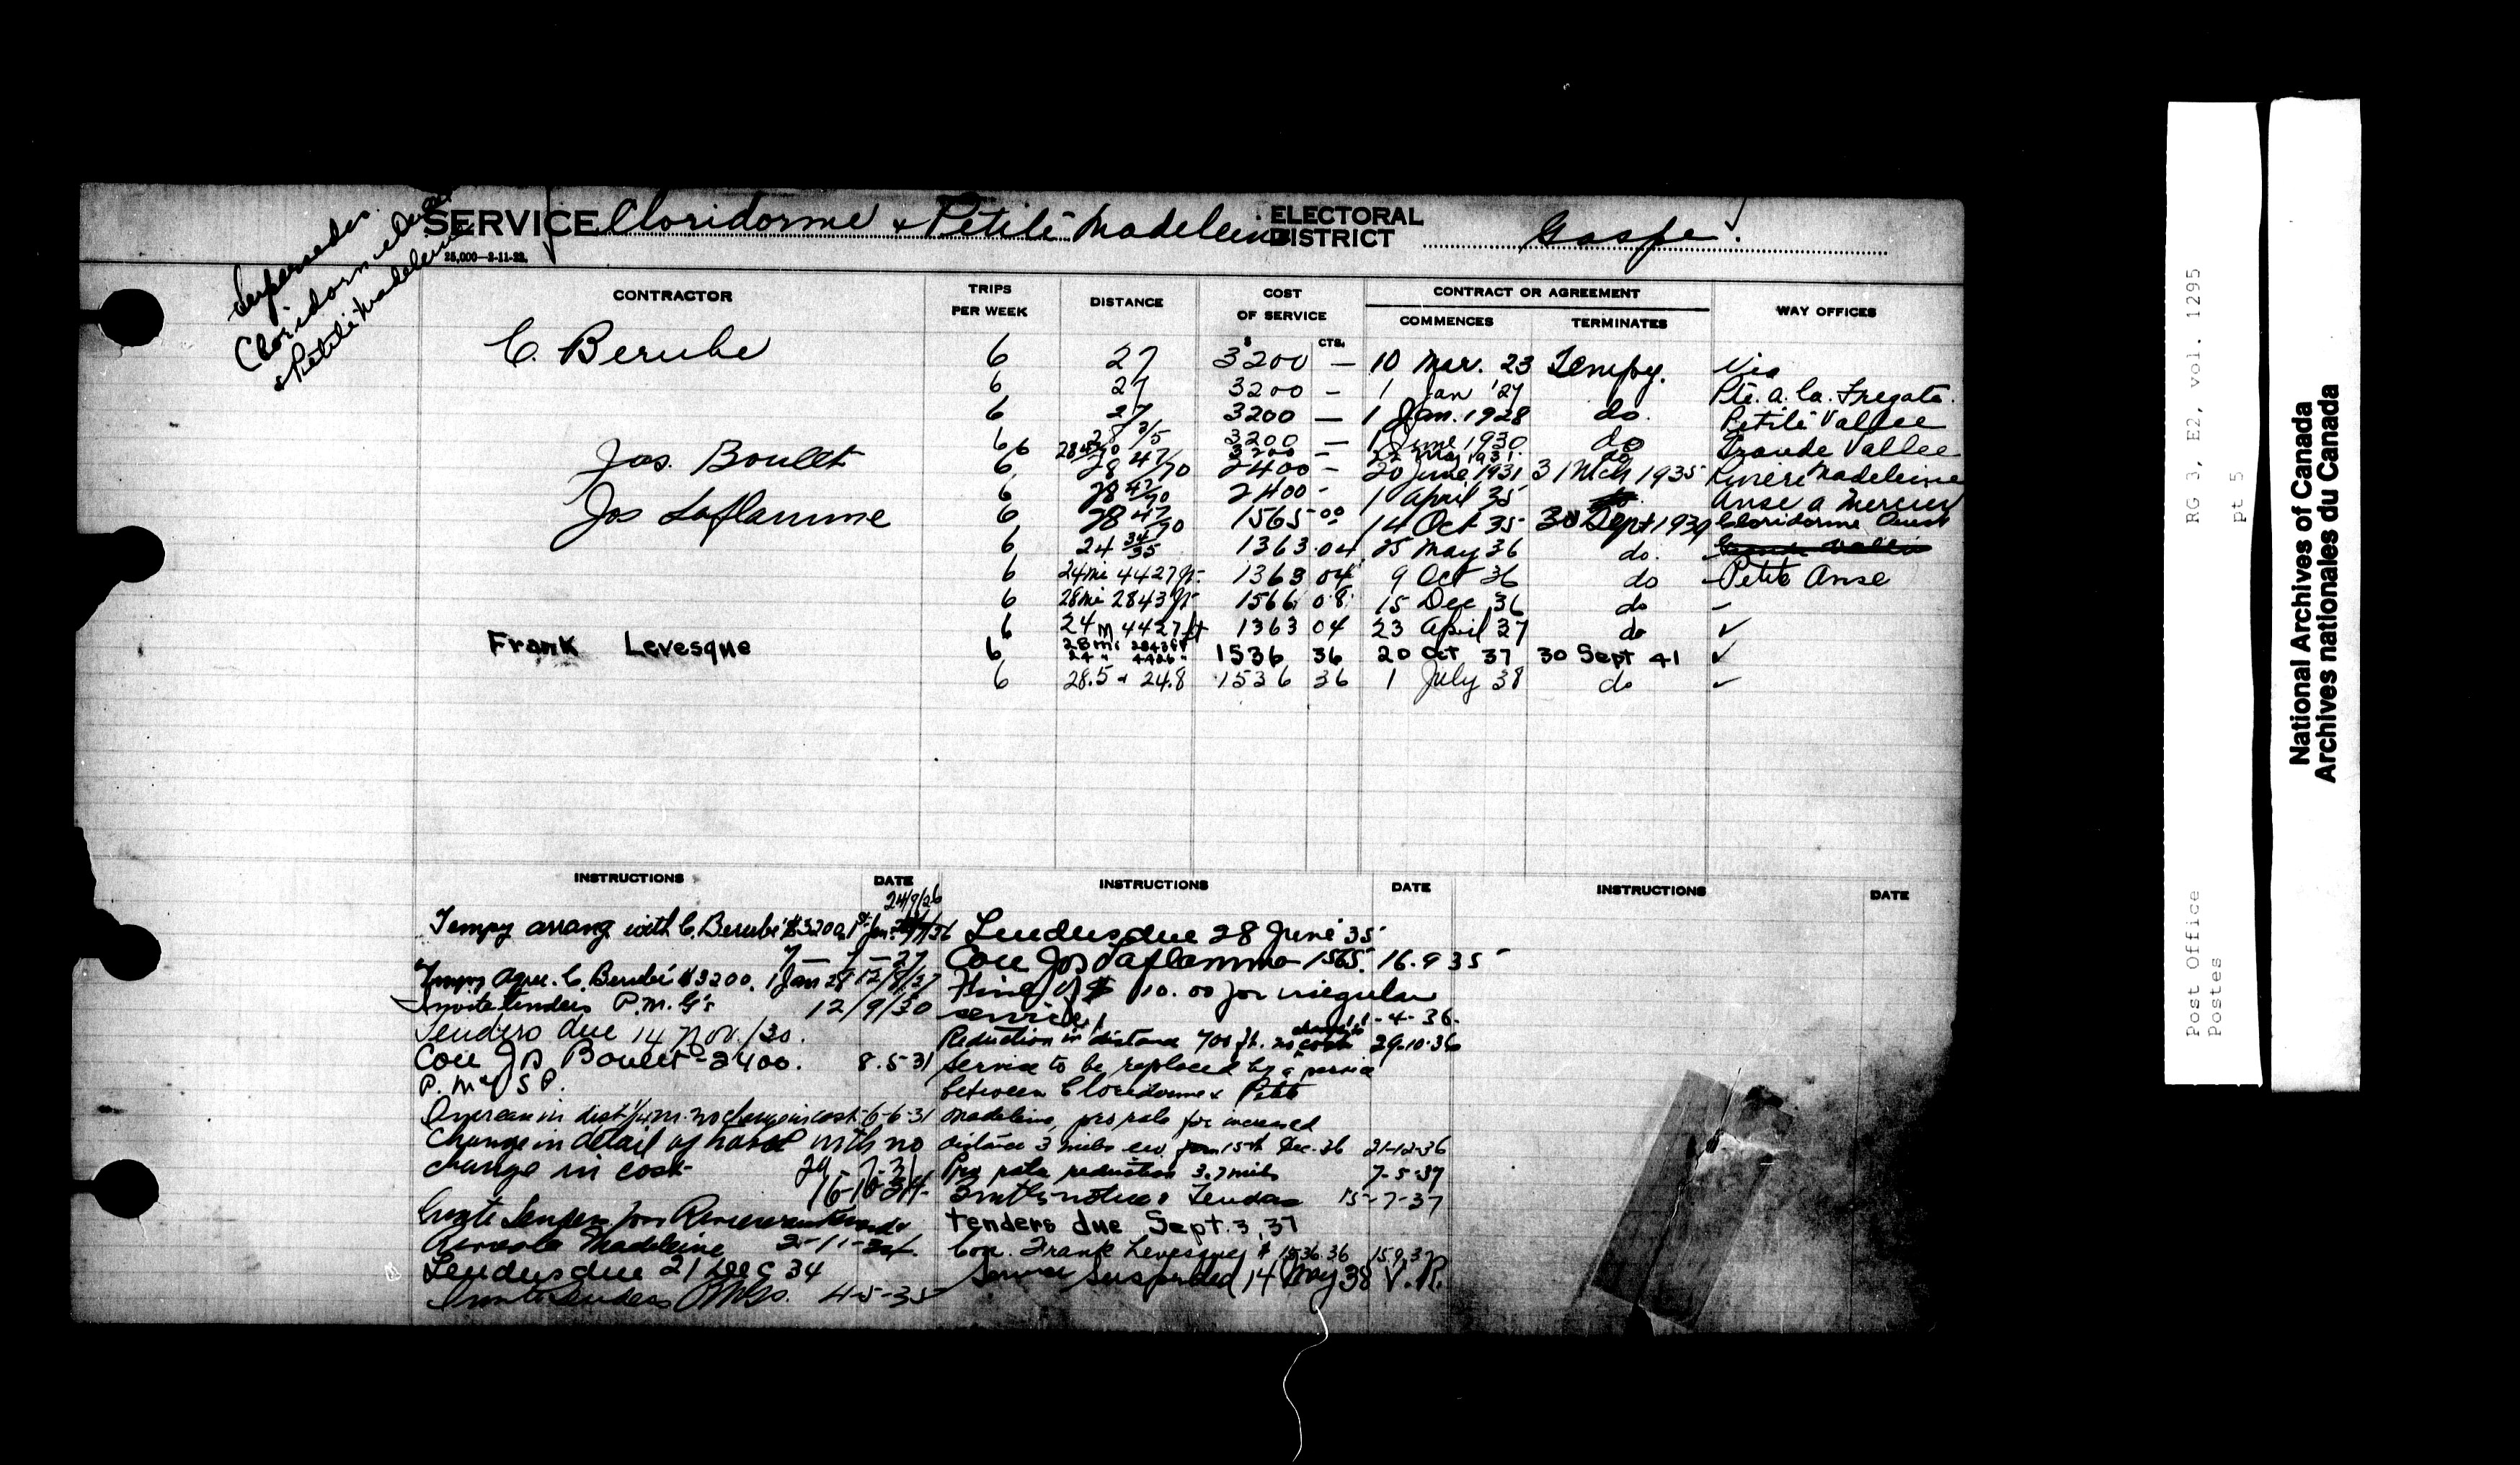 Supersedes
Cloridorme Ouest
& Petite Madeleine
SERVICE Cloridorme & Petite Madeleine ELECTORAL DISTRICT Gaspe.
25,000-2-11-22.
CONTRACTOR TRIPS PER WEEK DISTANCE COST OF SERVICE CONTRACT OR AGREEMENT WAY OFFICES
COMMENCES TERMINATES
$ CTS.
C. Berube 6 27 3200 — 10 Mar. 23 Tempy. Via
6 27 3200 — 1 Jan '27 Pte. a. la. Fregate.
6 27 3200 — 1 Jan. 1928 do. Petite Vallee
6 28 2/5 3200 — 1 June 1930 do Grande Vallee
6 3200 — 1931 do
Jos. Boulet 6 28 47/70 2400 — 20 June 1931 31 Mch 1935 Riviere Madeleine
6 28 47/70 2400 - 1 April 35 Anse a Mercier
Jos Laflamme 6 28 47/70 1565 00 14 Oct 35 30 Sept 1939 Cloridorme Ouest
6 24 34/35 1363.04 25 May 36 do.
6 24mi 4427ft. 1363 04 9 Oct 36 do Petite Anse
6 28mi 2843ft 1566 08 15 Dec 36 do
6 24 m 4427 ft 1363 04 23 April 37 do ✓
Frank Levesque 6 28 mi 2843ft 24 " 4426 " 1536 36 20 Oct 37 30 Sept 41 ✓
6 28.5 & 24.8 1536 36 1 July 38 do ✓
INSTRUCTIONS DATE INSTRUCTIONS DATE INSTRUCTIONS DATE
24/9/26
Tempy arrang with C. Berube $3200
7 — 7 — 27
Tempy agree. C. Berube $3200. 1 Jan 28 12/8/27
Invite tenders P.M.G's 12/9/30
Tenders due 14 Nov./30.
Con Jos Boulet - 2400. 8.5.31
P. M
in dist. 1/4 m. no change in cost. 6-6-31
Change in detail of with no
change in cost 29-7-31
16-10-34.
Madeleine 2-11-34.
Tenders due 21 Dec 34
Invite tenders PMGs. 4-5-35
Tenders due 28 June 35
Con Jos Laflamme 1565. 16.9 35
Fine of $10.00 for irregular
service 1-4-36.
Reduction in distance 700 ft. no change in cost 29.10.36
Service to be replaced by a service
between Cloridorme & Petite
Madeleine, pro rata for increased
distance 3 miles from 15th Dec. 36 21-12-36
Pro rata reduction 3.7 miles 7-5-37
3 mths notice & Tenders 15-7-37
Tenders due Sept. 3, 37
Con. Frank Levesque $1536.36 15.9.37
Service Suspended 14 May 38 V.R.
Post Office RG 3, E2, vol. 1295
Postes pt 5
National Archives of Canada
Archives nationales du Canada